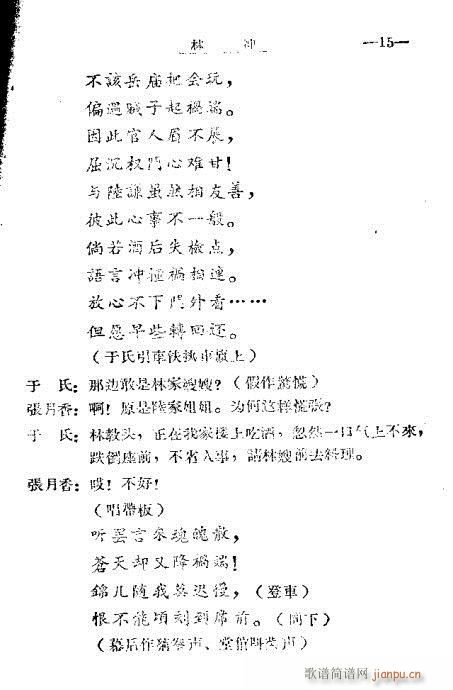 林 冲 —15—
不該岳庙把会玩，
偏遇贼子起禍端。
因此官人眉不展，
屈沉权門心难甘！
与陸謙虽然相友善，
彼此心事不一般。
倘若酒后失檢点，
語言冲撞禍相連。
放心不下門外看……
但愿早些轉回还。
（于氏引車伕执車旗上）
于 氏：那边敢是林家嫂嫂？（假作驚慌）
張月香：啊！原是陸家姐姐。为何这样慌張？
于 氏：林教头，正在我家楼上吃酒，忽然一口气上不來，
跌倒座前，不省人事，請林嫂前去料理。
張月香：哎！不好！
（唱帶板）
听罢言來魂魄散，
蒼天却又降禍端！
錦儿随我莫迟慢，（登車）
恨不能頃刻到席前。（同下）
（幕后作猜拳声、堂倌叫菜声）
歌谱简谱网
www.jianpu.cn